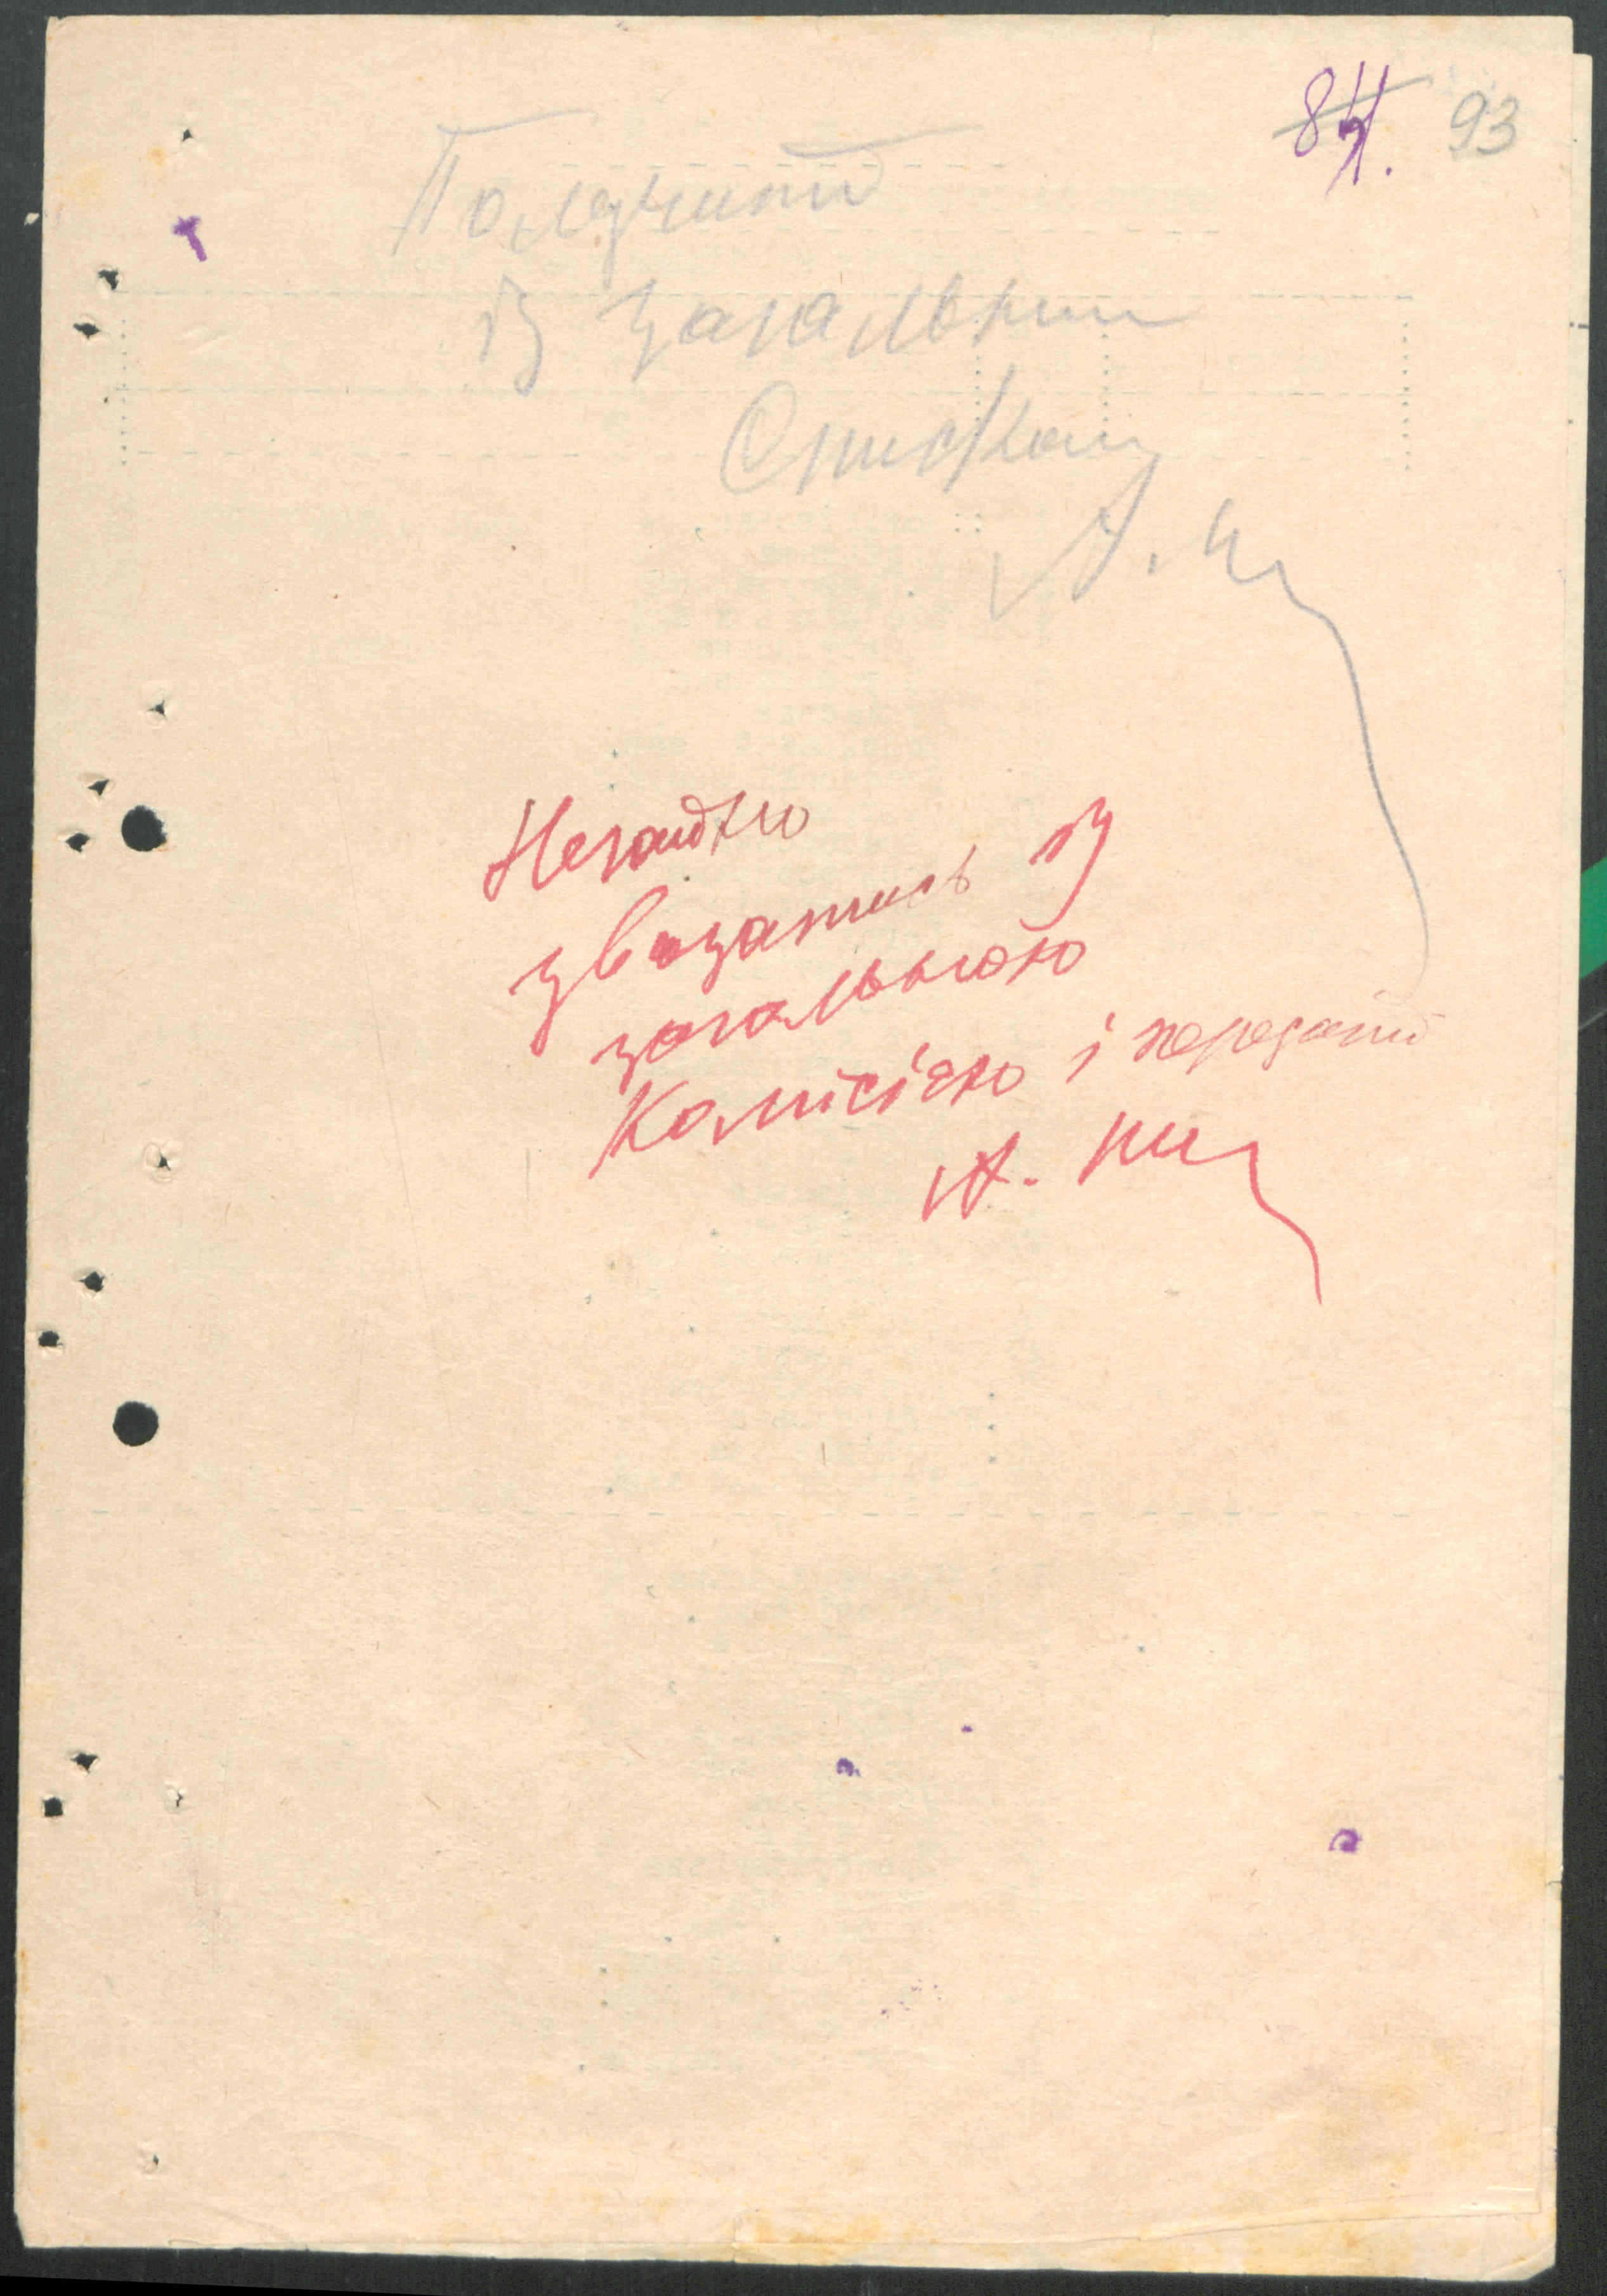 84. 93
Получити
Із загальним
Списком
А. Ки
Негайно
звязатись Із
загальною
Комісією і передати
А. Ки